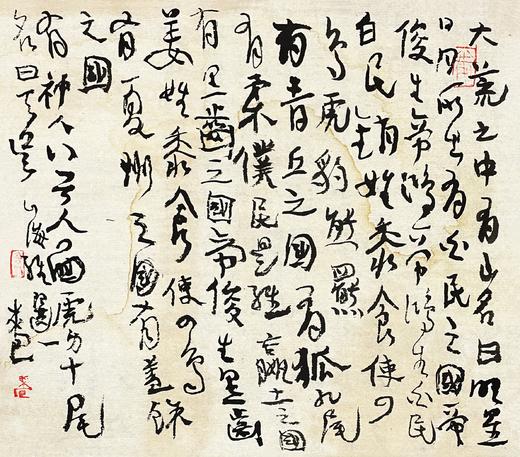 大荒之中有山名曰明星
日月所出有白民之國帝
俊生帝鴻帝鴻生白民
白民銷姓黍食使四
鳥虎豹熊羆
有青丘之國有狐九尾
有柔僕民是維嬴土之國
有黑齒之國帝俊生黑齒
姜姓黍食使四鳥
有夏州之國有蓋餘
之國
有神人八首人面虎身十尾
名曰天吳 山海經選一